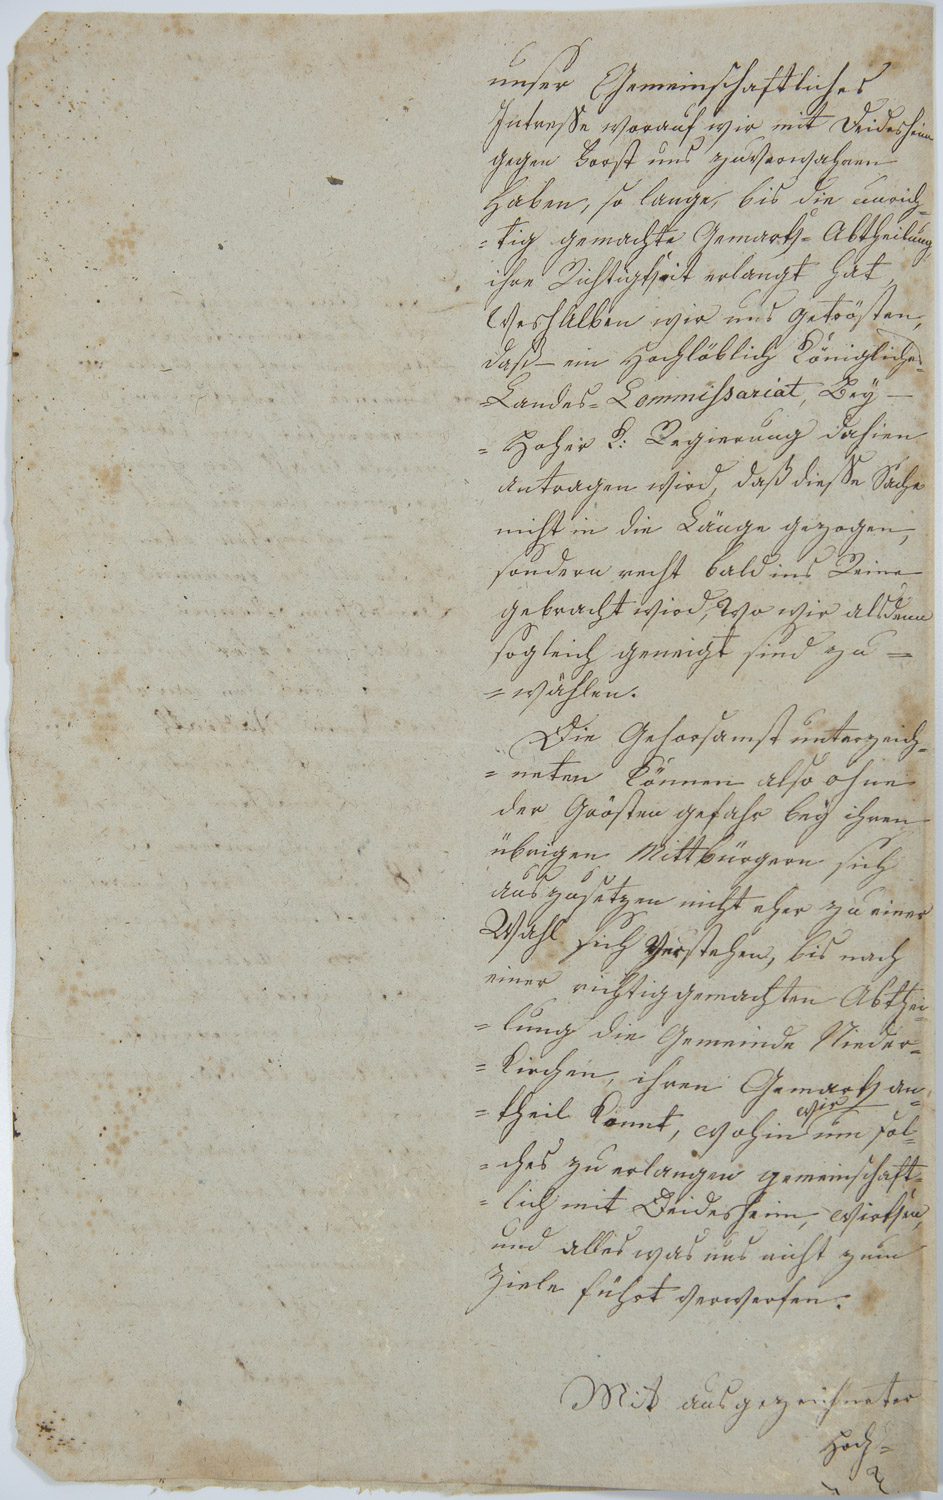 unser Gemeinschaftliches
Intresse worauf wir mit Deidesheim
gegen Forst uns zuverwahren
haben, so lange, bis die unrich=
=tig gemachte Gemark= Abtheilung,
ihre Richtigkeit erlangt hat,
Weshalben wir uns getrösten,
daß ein Hochlöblich Königliches=
=Landes= Commissariat, Bey
=Hoher K: Regierung dahien
antragen wird, daß diesse Sache
nicht in die Länge gezogen,
sondern recht bald ins Reine
gebracht wird, Wo wir alsdenn
sogleich geneigt sind zu =
=wählen.
Die Gehorsamst unterzeich=
=neten Können also ohne
der Grösten gefahr bey ihren
übrigen Mittbürgern sich
auszusetzen nicht eher zu einer
Wahl sich Verstehen, bis nach
einer richtig gemachten Abthei=
=lung die Gemeinde Nieder=
=Kirchen, ihren Gemark an=
=theil Kennt, wohin wir um sol=
=ches zu erlangen gemeinschaft=
=lich mit Deidesheim, Wirken,
und alles was uns nicht zum
Ziele führt verwerfen.
Mit ausgezeichneter
Hoch=